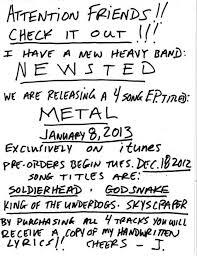 ATTENTION FRIENDS!!
CHECK IT OUT!!!
I HAVE A NEW HEAVY BAND:
NEWSTED
WE ARE RELEASING A 4 SONG EP TITLED:
METAL
JANUARY 8, 2013
EXCLUSIVELY ON itunes
PRE-ORDERS BEGIN TUES. DEC. 18 2012
SONG TITLES ARE:
SOLDIERHEAD. GODSNAKE
KING OF THE UNDERDOGS. SKYSCRAPER
BY PURCHASING ALL 4 TRACKS YOU WILL
RECEIVE A COPY OF MY HANDWRITTEN
LYRICS!! CHEERS - J.